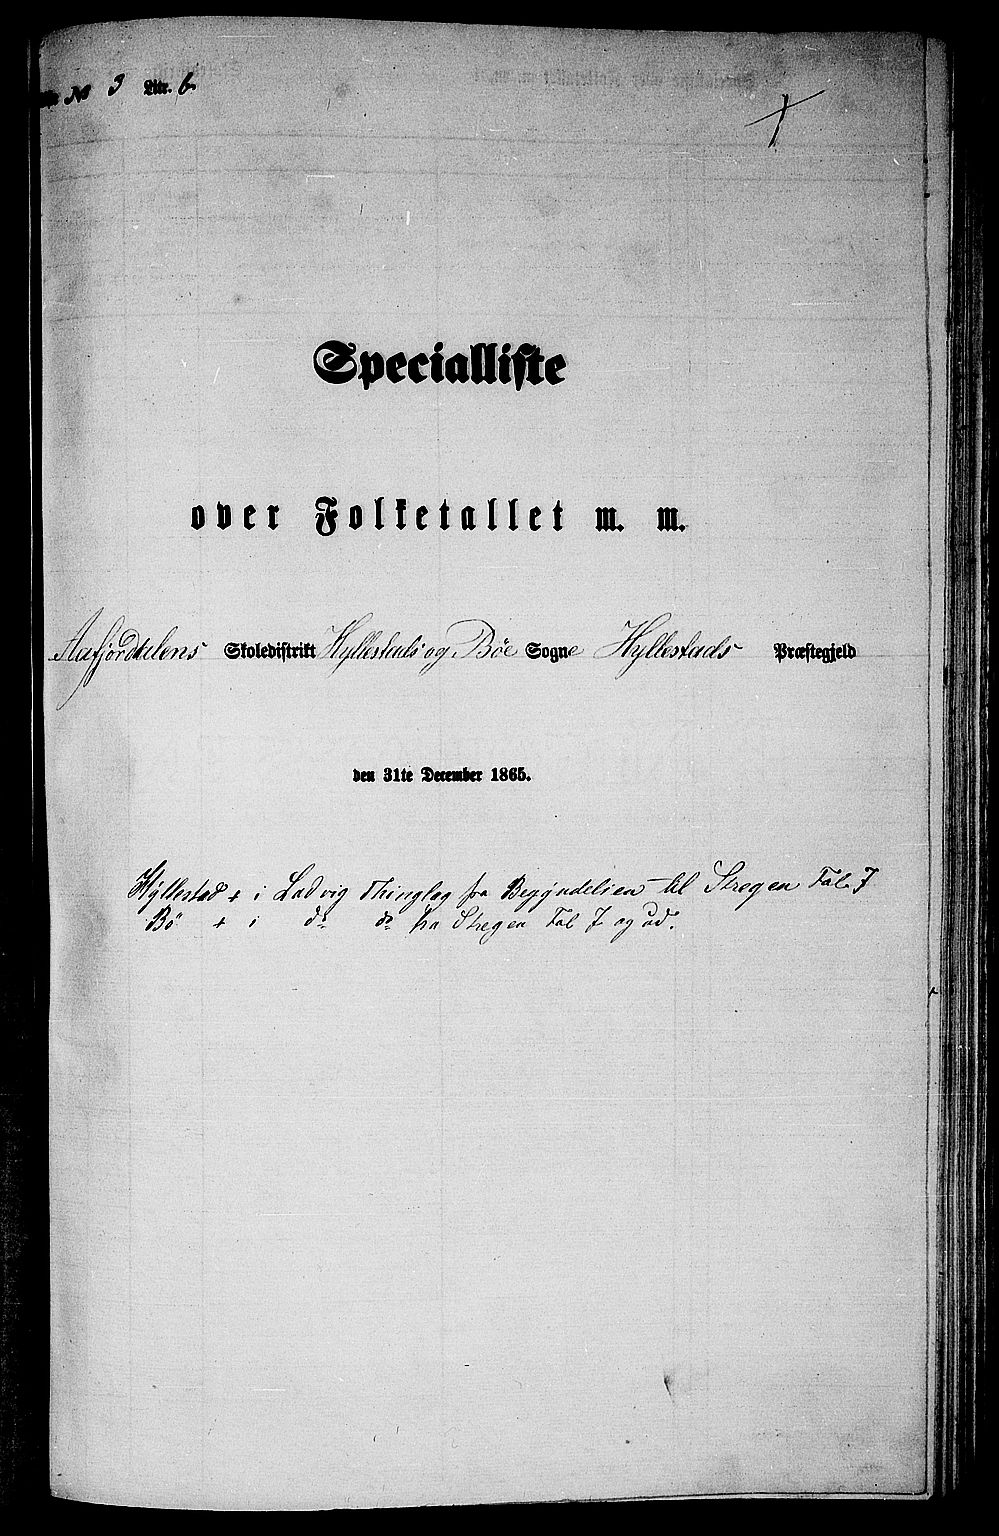 № 3 Litr. b.
Specialliste
over Folketallet m. m.
Aafjordalens Skoledistrikt Hyllestads og Böe Sogne Hyllestads Præstegjeld
den 31te December 1865.
Hyllestad + i Ladvig Thinglag fra Begyndelsen til Stregen Fol. 7
Bö + i do do fra Stregen Fol 7 og ud.